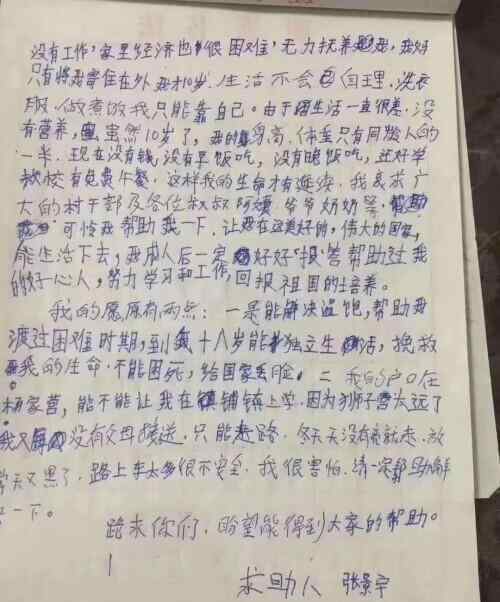 没有工作，家里经济也很困难，无力扶养我，我妈
只有将我寄住在外我才10岁生活不会自理．洗衣
服，做煮饭我只能靠自己。由于生活一直很差，没
有营养，虽然10岁了，我的身高．体重只有同龄人的
一半．现在没有钱，没有早饭吃，没有晚饭吃，还好学
校有免费午餐．这样我的生命才有连续．我哀求广
大的村干部及各位叔叔阿姨爷爷奶奶等．
可怜我帮助我一下．让我在这美好的，伟大的国家，
能生活下去，我成人后一定好好报答帮助过我
的好心人，努力学习和工作，回报祖国的培养。
我的愿原有两点：一是能解决温饱，帮助我
渡过困难时期，到我十八岁能独立生活，挽救
我的生命．不能困死，给国家丢脸．二我的户口在
杨家营，能不能让我在镇铺镇上学．因为狮子营太远了
我又没有父母接送．只能走路．冬天天没有亮就走．放
学天又黑了．路上车太多很不安全．我很害怕．请一定帮助解
一下。
跪求你们．盼望能得到大家的帮助。
求助人 张景宇